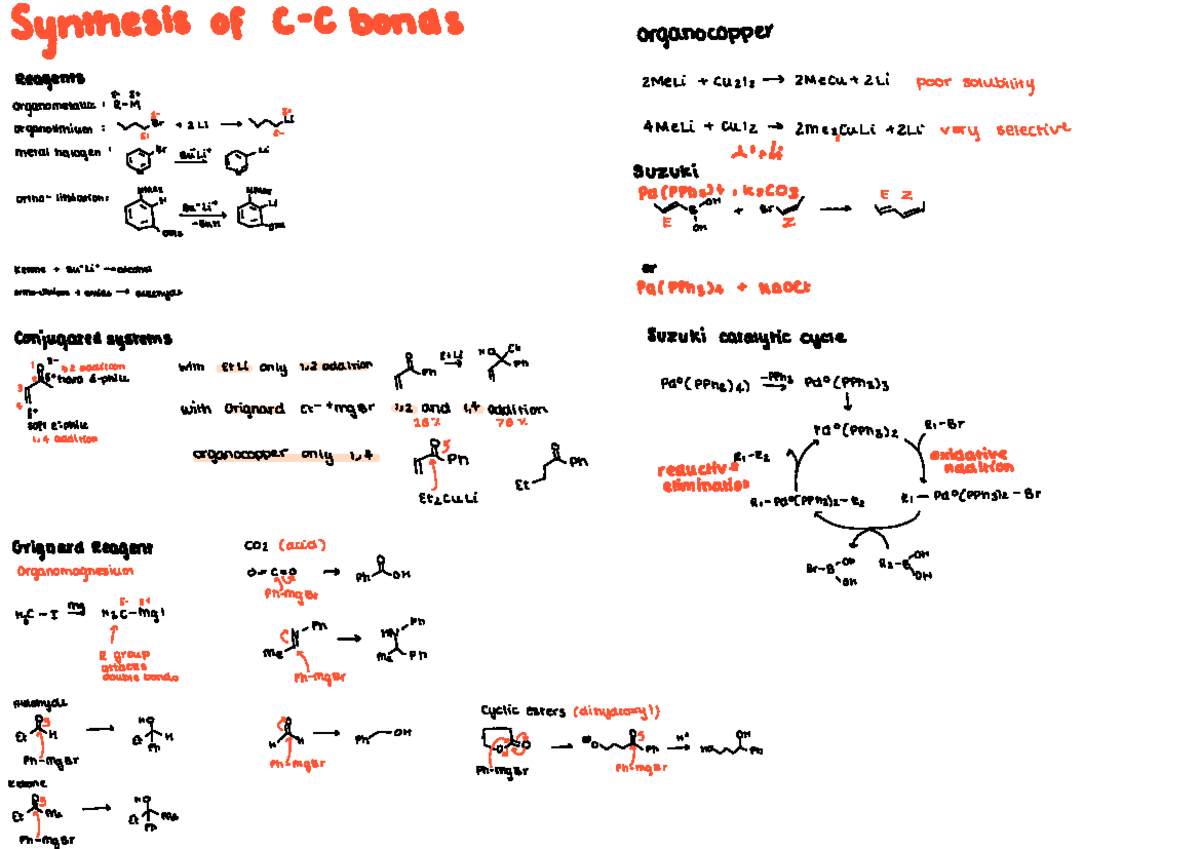 Synthesis of C-C bonds
Reagents
Organometallic : R-M
δ- δ+
organolithium : Br + 2 Li → Li
metal halogen : Br Bu⁻Li⁺ Li
ortho-lithiation: NMe2 H OMe Bu⁻Li⁺ -BuH NMe2 Li OMe
Ketone + Bu⁻Li⁺ → alcohol
Conjugated systems
1,2 addition
hard E-phile
soft E-phile
1,4 addition
with EtLi only 1,2 addition
O Ph EtLi HO Et Ph
with Grignard Et⁻ ⁺MgBr 1,2 and 1,4 addition
76%
organocopper only 1,4
O Ph
Et2CuLi
O Ph
Et
Grignard Reagent
Organomagnesium
H3C - I Mg → H3C-MgI
δ- δ+
R group
attacks
double bonds
CO2 (acid)
O=C=O → Ph O OH
Ph-MgBr
N Ph Me → HN Ph Me Ph
Ph-MgBr
Aldehyde
Et O H → HO Et H Ph
Ph-MgBr
O H H → Ph OH
Ph-MgBr
Ketone
Et O Me → HO Et Me Ph
Ph-MgBr
Cyclic esters (dihydroxyl)
Ph-MgBr
Ph-MgBr
H+
organocopper
2MeLi + Cu2I2 → 2MeCu + 2Li poor solubility
4MeLi + CuI2 → 2Me2CuLi + 2Li very selective
Suzuki
Pd(PPh3)4 , K2CO3
E B OH OH + Br Z → E Z
or
Pd(PPh3)4 + NaOEt
Suzuki catalytic cycle
Pd⁰(PPh3)4) -PPh3 Pd⁰(PPh3)3
Pd⁰(PPh3)2
R1-Br
oxidative
addition
R1-Pd⁰(PPh3)2-Br
R2-B OH OH
Br-B OH OH
R1-Pd⁰(PPh3)2-R2
reductive
elimination
R1-R2